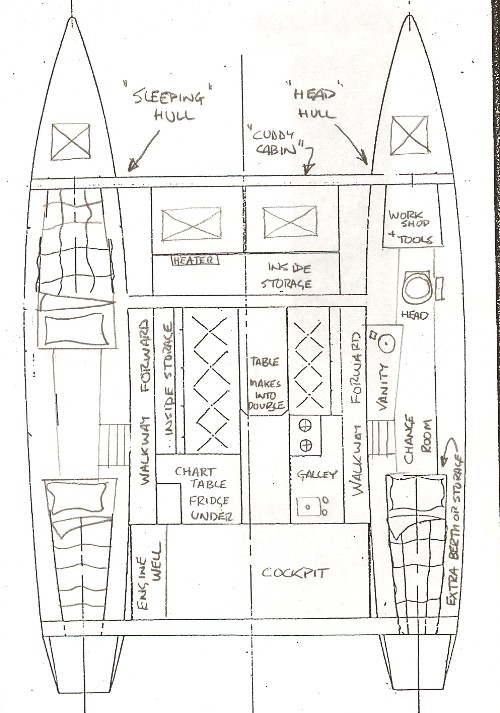 "SLEEPING"
HULL
"HEAD"
HULL
"CUDDY
CABIN"
WORK
SHOP
+ TOOLS
HEATER
INSIDE
STORAGE
HEAD
WALKWAY FORWARD
INSIDE STORAGE
TABLE
MAKES
INTO
DOUBLE
WALKWAY FORWARD
VANITY
CHANGE
ROOM
CHART
TABLE
FRIDGE
UNDER
GALLEY
EXTRA BERTH OR STORAGE
ENGINE
WELL
COCKPIT